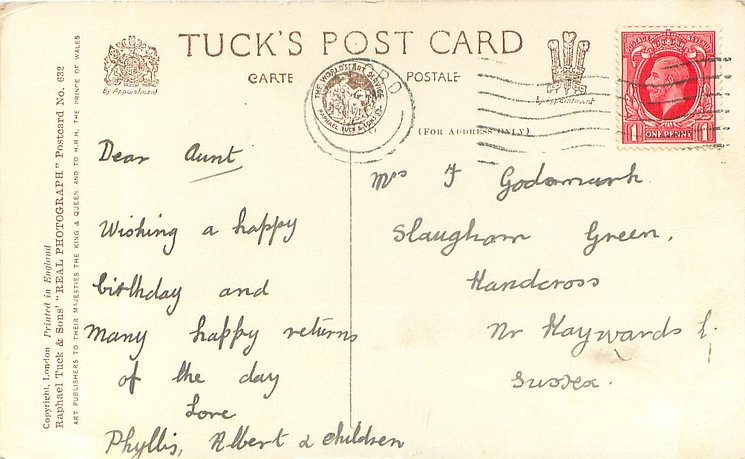 TUCK'S POST CARD
CARTE POSTALE
By Appointment
By Appointment
(FOR ADDRESS ONLY)
ONE PENNY
1 1
Copyright, London Printed in England
Raphael Tuck & Sons' "REAL PHOTOGRAPH" Postcard No. 632
ART PUBLISHERS TO THEIR MAJESTIES THE KING & QUEEN AND TO H.R.H. THE PRINCE OF WALES
Dear Aunt
Wishing a happy
birthday and
Many happy returns
of the day
Love
Phyllis, Albert & children
Mrs F Godsmark
Slaugham Green,
Handcross
Nr Haywards
Sussex.